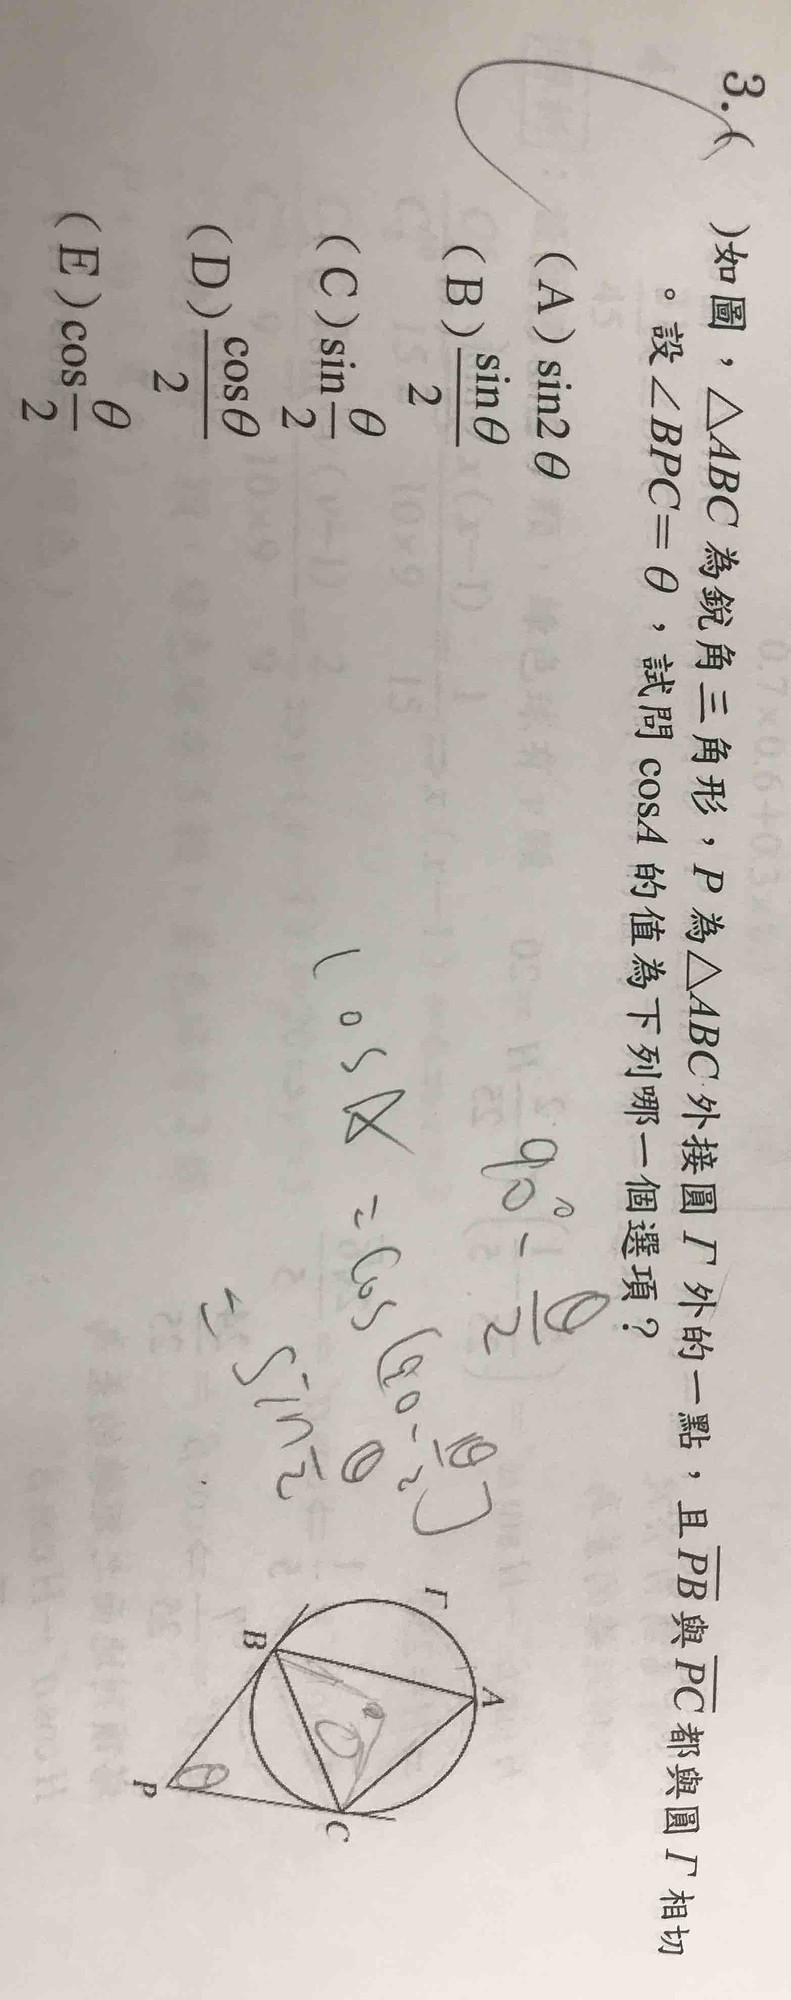 3.(　　)如圖，△ABC 為銳角三角形，P 為△ABC 外接圓 Γ 外的一點，且 PB 與 PC 都與圓 Γ 相切
。設∠BPC＝θ，試問 cosA 的值為下列哪一個選項？
(A) sin2θ
(B) sinθ/2
(C) sin θ/2
(D) cosθ/2
(E) cos θ/2
90° - θ/2
cosA = cos(90 - θ/2)
= sin θ/2
Γ
A
B
C
P
θ